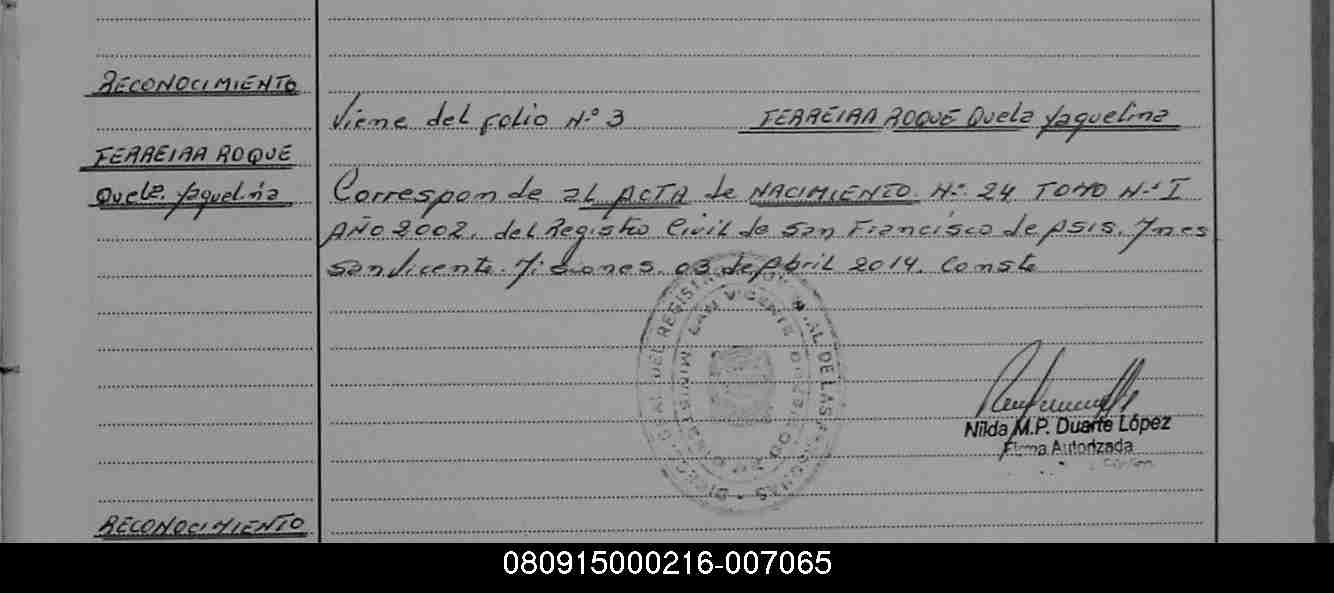 RECONOCIMIENTO
Viene del folio N.º 3 FERREIRA ROQUE Quela Yaquelina
FERREIRA ROQUE
Quela Yaquelina
Corresponde al ACTA de NACIMIENTO. N.º 24 TOMO N.º I
AÑO 2002. del Registro Civil de San Francisco de Asis. Ynes
San Vicente. Misiones. 03 de Abril 2014. Conste
SAN VICENTE
DE LAS PERSONAS
Nilda M.P. Duarte López
Firma Autorizada
RECONOCIMIENTO
080915000216-007065